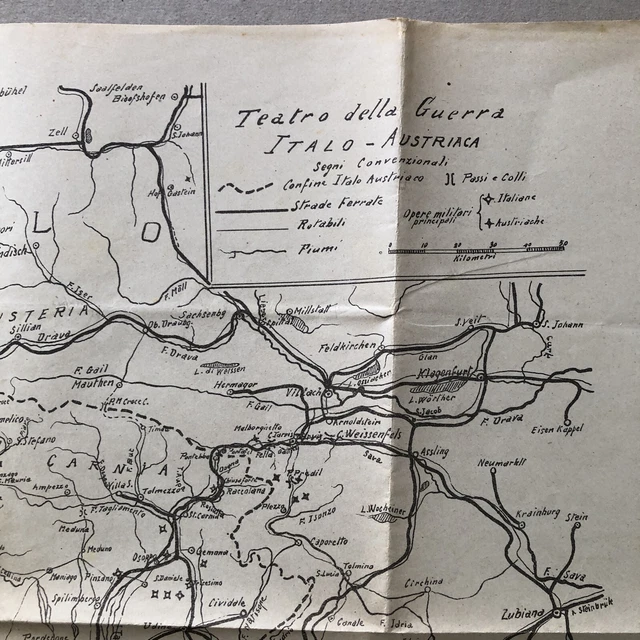 Saalfelden
Bisofshofen
Zell
S. Johann
Hof Gastein
L
O
Teatro della Guerra
ITALO - AUSTRIACA
Segni Convenzionali
Confine Italo Austriaco
Passi e Colli
Strade Ferrate
Rotabili
Fiumi
Opere militari
principali
Italiane
Austriache
0 10 20 30 40 50
Kilometri
F. Iser
F. Möll
Sillian
Drava
Ob. Draubg
Sachsenbg
F. Drava
Millstatt
Spittal
Feldkirchen
S. Veit
S. Johann
Glan
Gurk
L. di Weissen
L. Ossiacher
Klagenfurt
L. Wörther
F. Gail
Mauthen
Hermagor
F. Gail
Villach
S. Jacob
F. Drava
Eisen Kappel
Arnoldstein
C. Weissenfels
Sava
Assling
Neumarktl
Timau
Malborghetto
S. Stefano
CARNIA
Ampezzo
Villa S.
Tolmezzo
F. Tagliamento
Chiusaforte
Raccolana
Predil
Plezzo
F. Isonzo
L. Wocheiner
Krainburg
Stein
Meduna
Meduno
Osoppo
Gemona
Caporetto
S. Lucia
Tolmina
Circhina
F. Sava
Maniago
Pinzano
S. Daniele
Tricesimo
Spilimbergo
Cividale
Canale
F. Idria
Lubiana
a Steinbrük
Udine
Pordenone